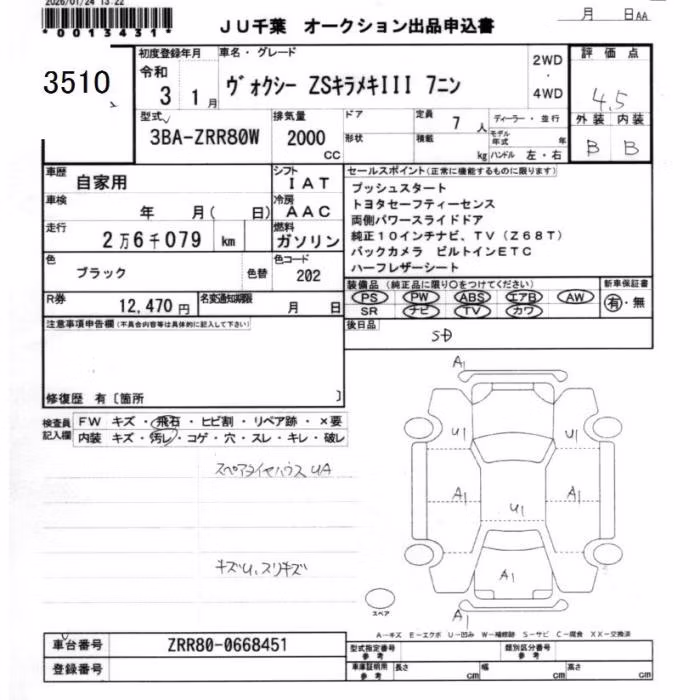 2026/01/24 13:22
*0013431*
JU千葉 オークション出品申込書
月 日AA
3510
初度登録年月
令和
3 1月
車名・グレード
ヴォクシー ZSキラメキIII 7ニン
2WD
・
4WD
評価点
4.5
外装 内装
B B
型式
3BA-ZRR80W
排気量
2000
CC
ドア
形状
定員
7 人
積載
kg
ディーラー・並行
モデル年式 年
ハンドル 左・右
車歴
自家用
シフト
IAT
車検
年 月( 日)
冷房
AAC
走行
2万6千079 km
燃料
ガソリン
色
ブラック
色替
色コード
202
R券
12,470円
名変通知期限
月 日
セールスポイント(正常に機能するものに限ります)
プッシュスタート
トヨタセーフティーセンス
両側パワースライドドア
純正10インチナビ、TV(Z68T)
バックカメラ ビルトインETC
ハーフレザーシート
装備品(純正品に限り○をつけてください)
PS PW ABS エアB AW
SR ナビ TV カワ
新車保証書
有・無
後日品
SD
注意事項申告欄(不具合内容等は具体的に記入して下さい)
修復歴 有〔箇所 〕
検査員
記入欄
FW キズ・飛石・ヒビ割・リペア跡・×要
内装 キズ・汚レ・コゲ・穴・スレ・キレ・破レ
スペアタイヤハウスUA
キズU、スリキズ
A1
U1
U1
A1
A1
U1
A1
A1
スペア
A－キズ E－エクボ U－凹み W－補修跡 S－サビ C－腐食 XX－交換済
車台番号
ZRR80-0668451
登録番号
型式指定番号
参考
類別区分番号
参考
車庫証明用
参考
長さ cm
幅 cm
高さ cm